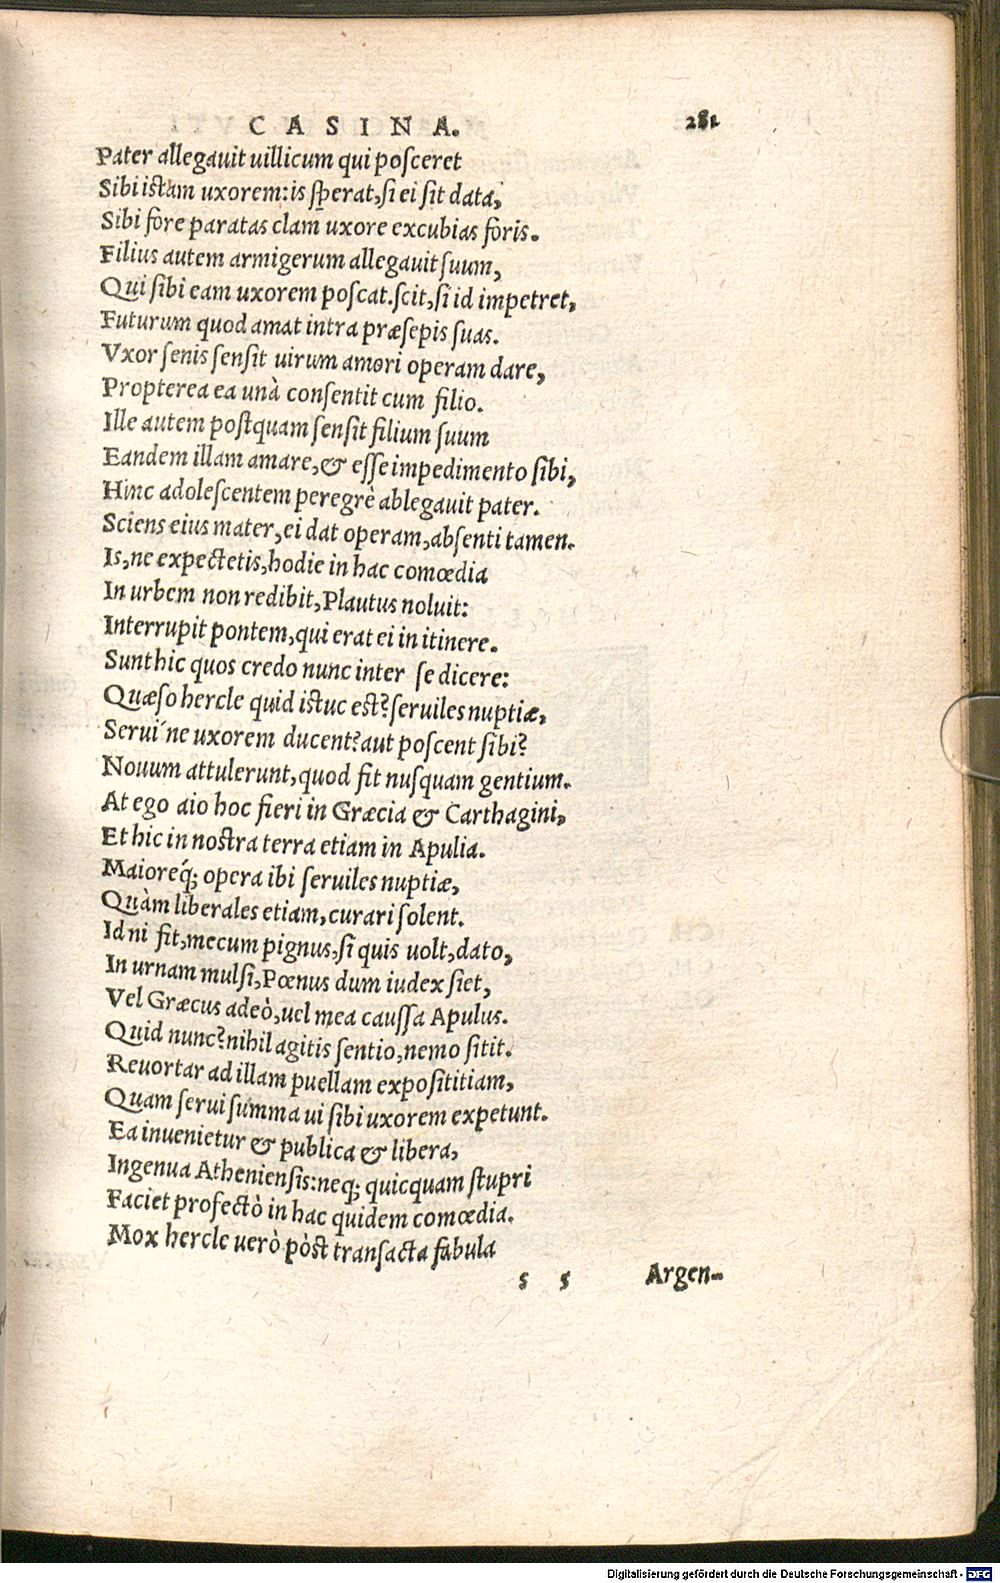 CASINA. 281
Pater allegauit uillicum qui posceret
Sibi istam uxorem: is sꝑerat, si ei sit data,
Sibi fore paratas clam uxore excubias foris.
Filius autem armigerum allegauit suum,
Qui sibi eam uxorem poscat. scit, si id impetret,
Futurum quod amat intra præsepis suas.
Vxor senis sensit uirum amori operam dare,
Propterea ea unà consentit cum filio.
Ille autem postquam sensit filium suum
Eandem illam amare, & esse impedimento sibi,
Hinc adolescentem peregrè ablegauit pater.
Sciens eius mater, ei dat operam, absenti tamen.
Is, ne expectetis, hodie in hac comœdia
In urbem non redibit, Plautus noluit:
Interrupit pontem, qui erat ei in itinere.
Sunt hic quos credo nunc inter se dicere:
Quæso hercle quid istuc est? seruiles nuptiæ,
Serui´ne uxorem ducent? aut poscent sibi?
Nouum attulerunt, quod fit nusquam gentium.
At ego aio hoc fieri in Græcia & Carthagini,
Et hic in nostra terra etiam in Apulia.
Maioreq́; opera ibi seruiles nuptiæ,
Quàm liberales etiam, curari solent.
Id ni fit, mecum pignus, si quis uolt, dato,
In urnam mulsi, Pœnus dum iudex siet,
Vel Græcus adeò, uel mea caussa Apulus.
Quid nunc? nihil agitis sentio, nemo sitit.
Reuortar ad illam puellam exposititiam,
Quam serui summa ui sibi uxorem expetunt.
Ea inuenietur & publica & libera,
Ingenua Atheniensis: neq; quicquam stupri
Faciet profectò in hac quidem comœdia.
Mox hercle uerò pòst transacta fabula
s 5 Argen-
Digitalisierung gefördert durch die Deutsche Forschungsgemeinschaft - DFG